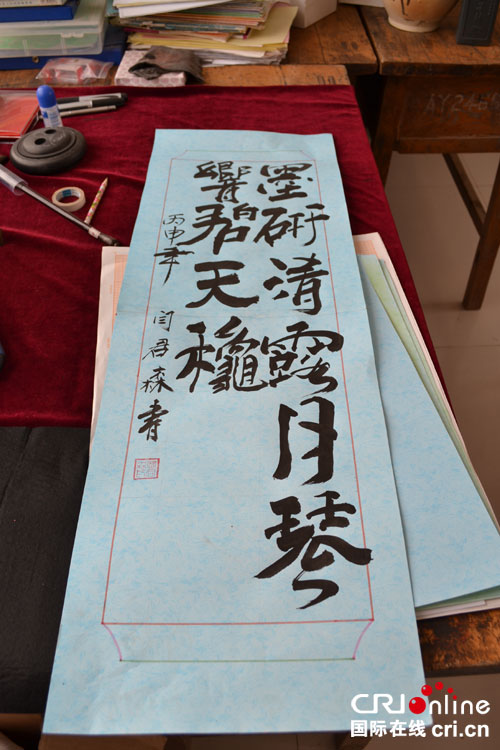 墨研清露月琴
響碧天龝
丙申年
闫君森書
CRIonline
国际在线 cri.cn